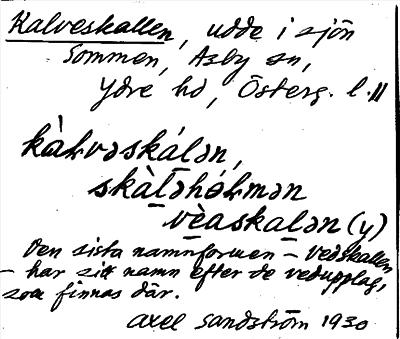 Kalveskallen, udde i sjön
Sommen, Asby sn,
Ydre hd, Österg. l.
kàɫvəskálən,
skàləhóɫmən
vèaskalən (y)
Den sista namnformen – Vedskallen
– har sitt namn efter de vedupplag,
som finnas där.
Axel Sandström 1930